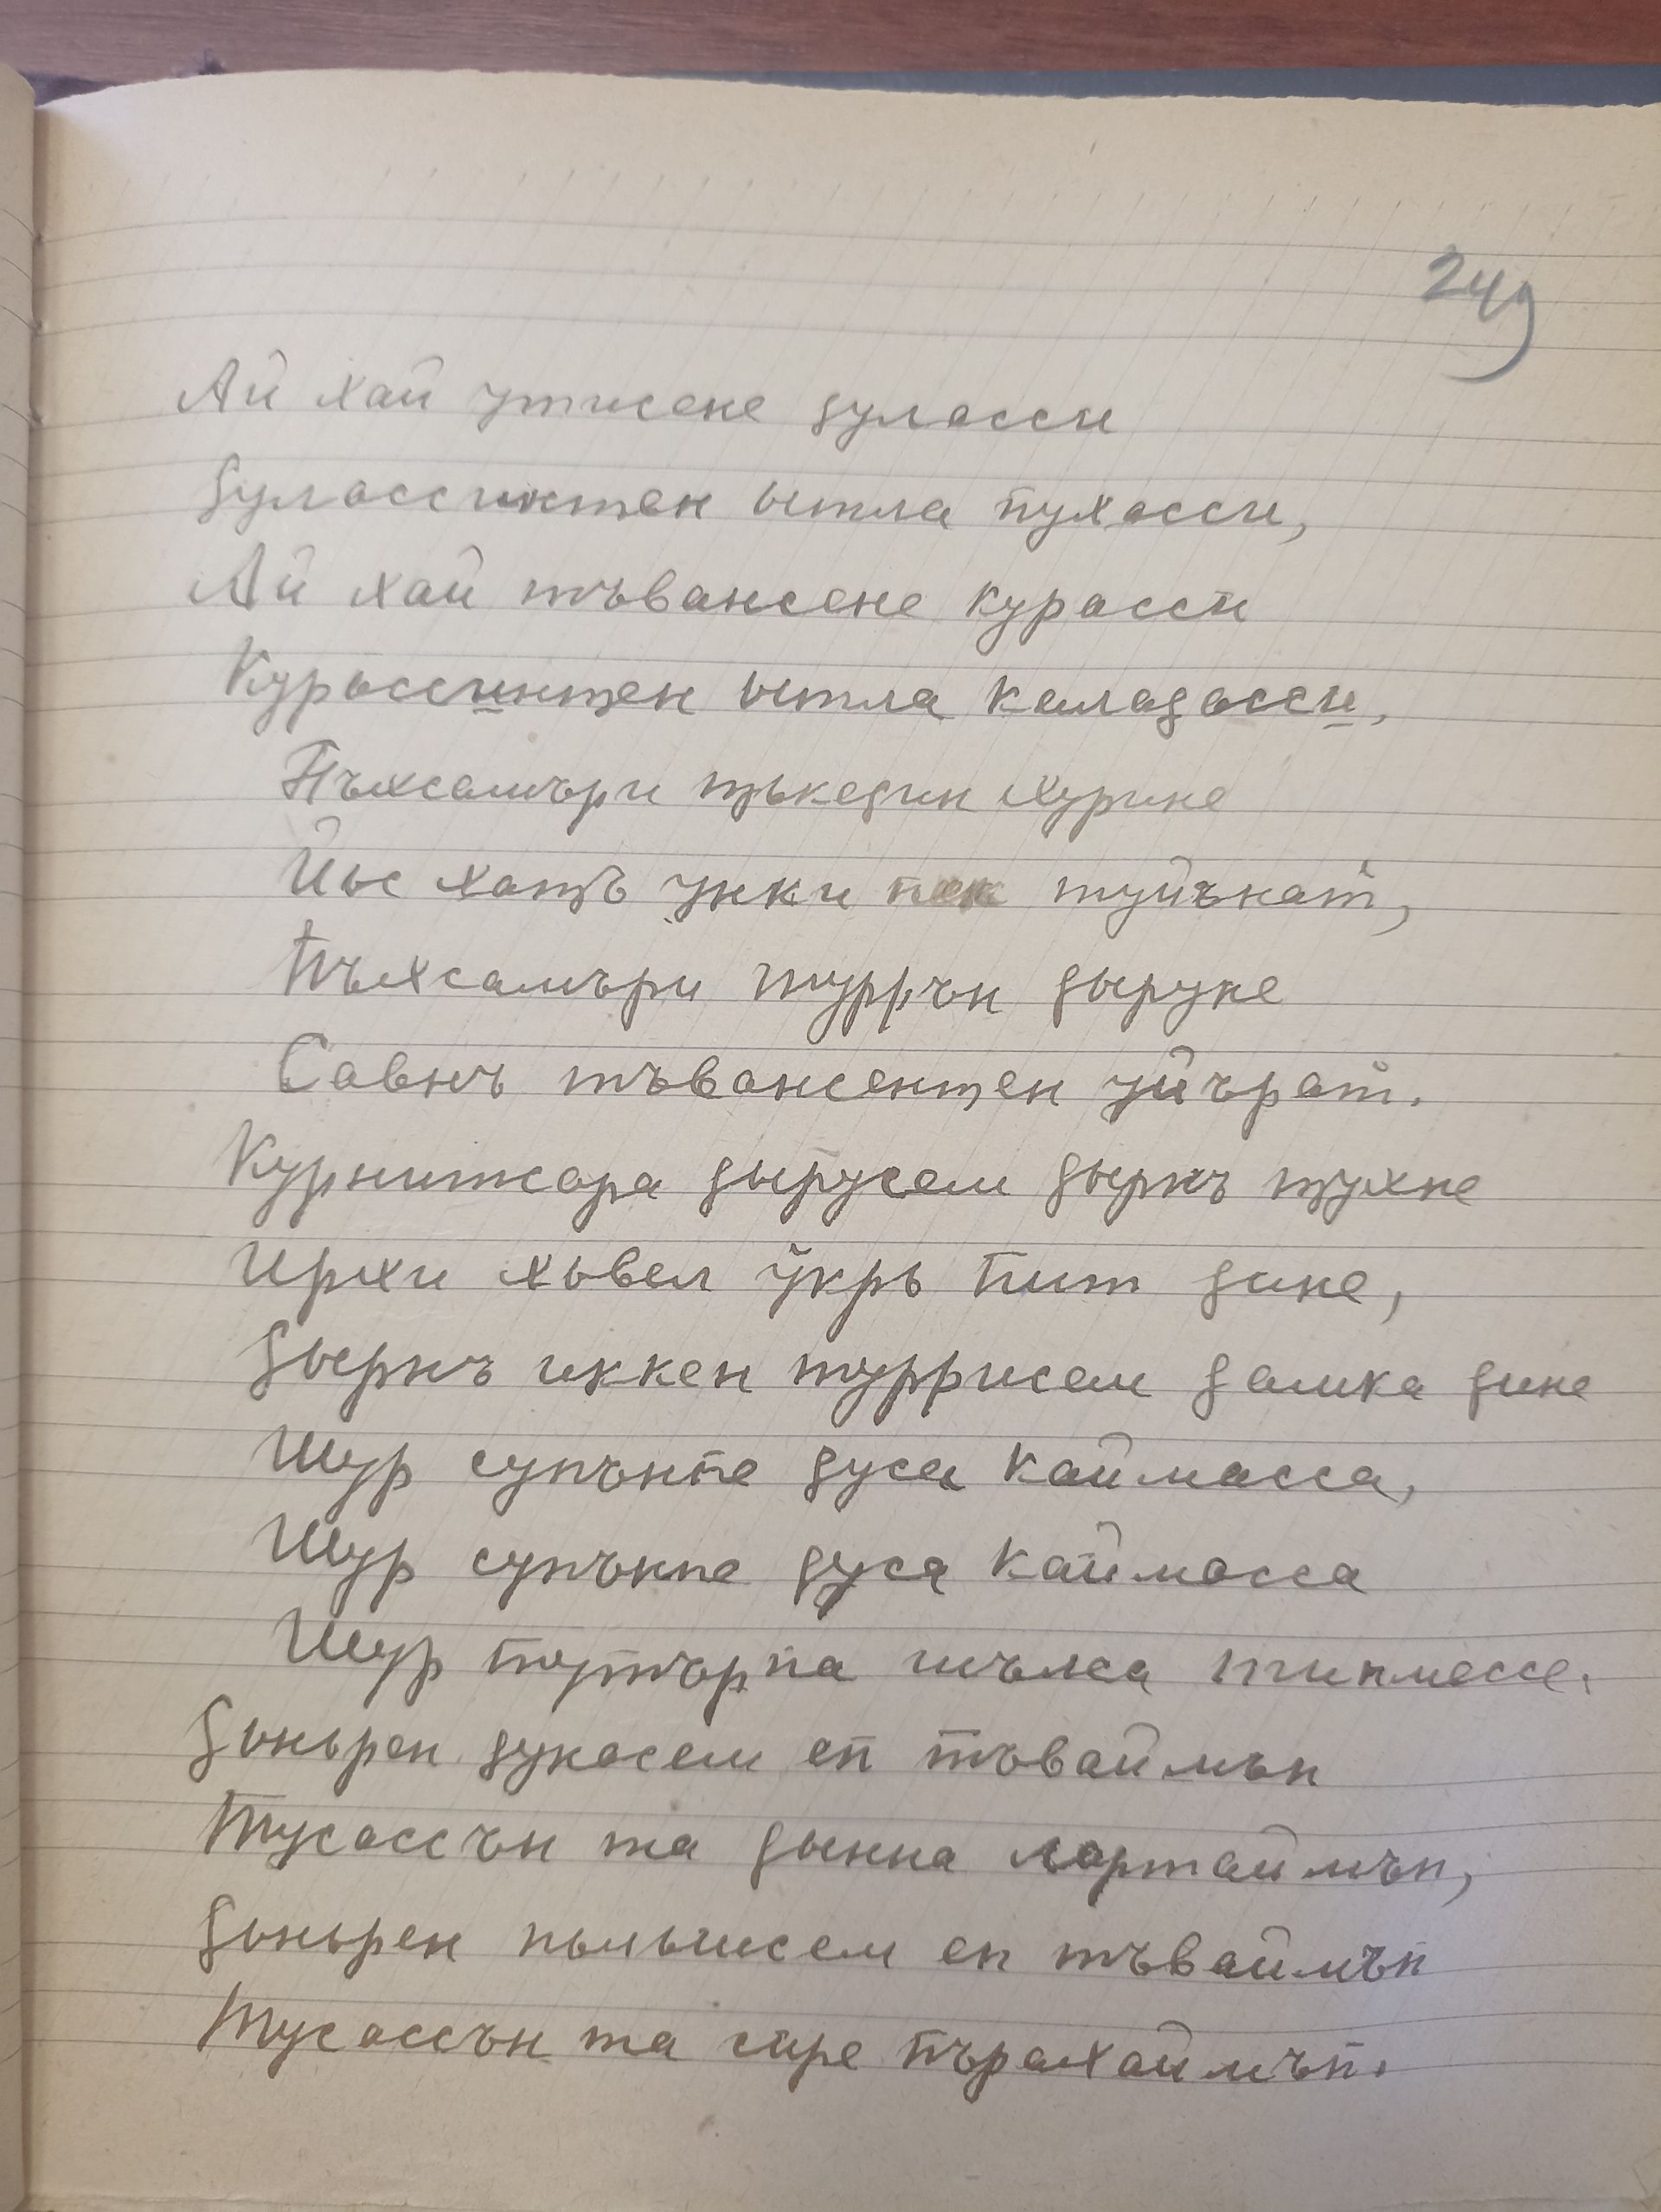 249
Ай хай утисене ҫуласси
Ҫулассинтен ытла пухасси,
Ай хай тъвансене курасси
Курассинтен ытла калаҫасси,
Пъхсамъри тъкеҫин хурине
Йыс хатъ унки пек туйънат,
Пъхсамъри туррън ҫыруне
Савнъ тъвансентен уйърат.
Курнитсара ҫырусем ҫырнъ тухне
Ирхи хъвел ӳкрь пит ҫине,
Ҫырнъ иккен туррисем ҫамка ҫине
Шур супънпе ҫуса каймасса,
Шур супънпе ҫуса каймасса
Шур тутърпа шълса типмессе.
Ҫоньрен ҫукасем еп тъваймъп
Тусассън та ҫынна лартаймъп,
Ҫоньрен пылышсем еп тъваймъп
Тусассън та сире пърахаймъп.